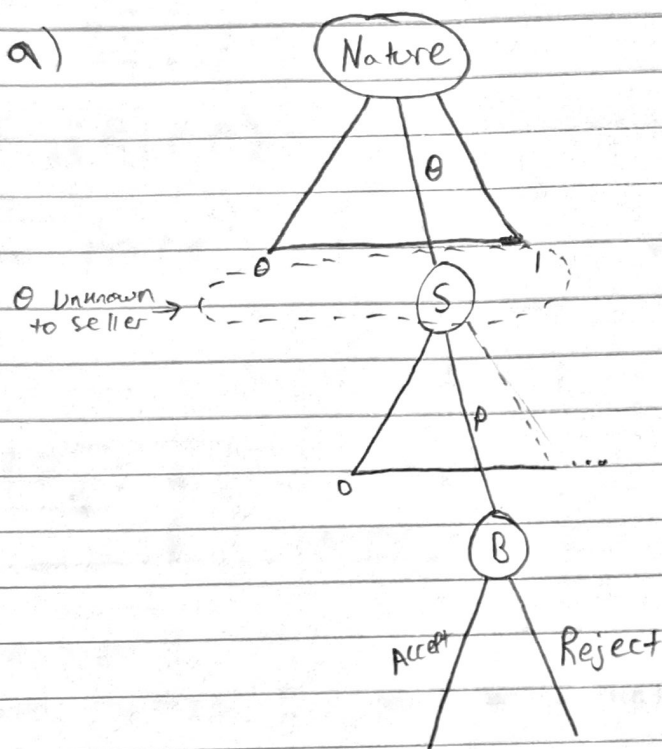 a)
Nature
θ
0
1
θ Unknown
to seller
S
p
0
...
B
Accept
Reject